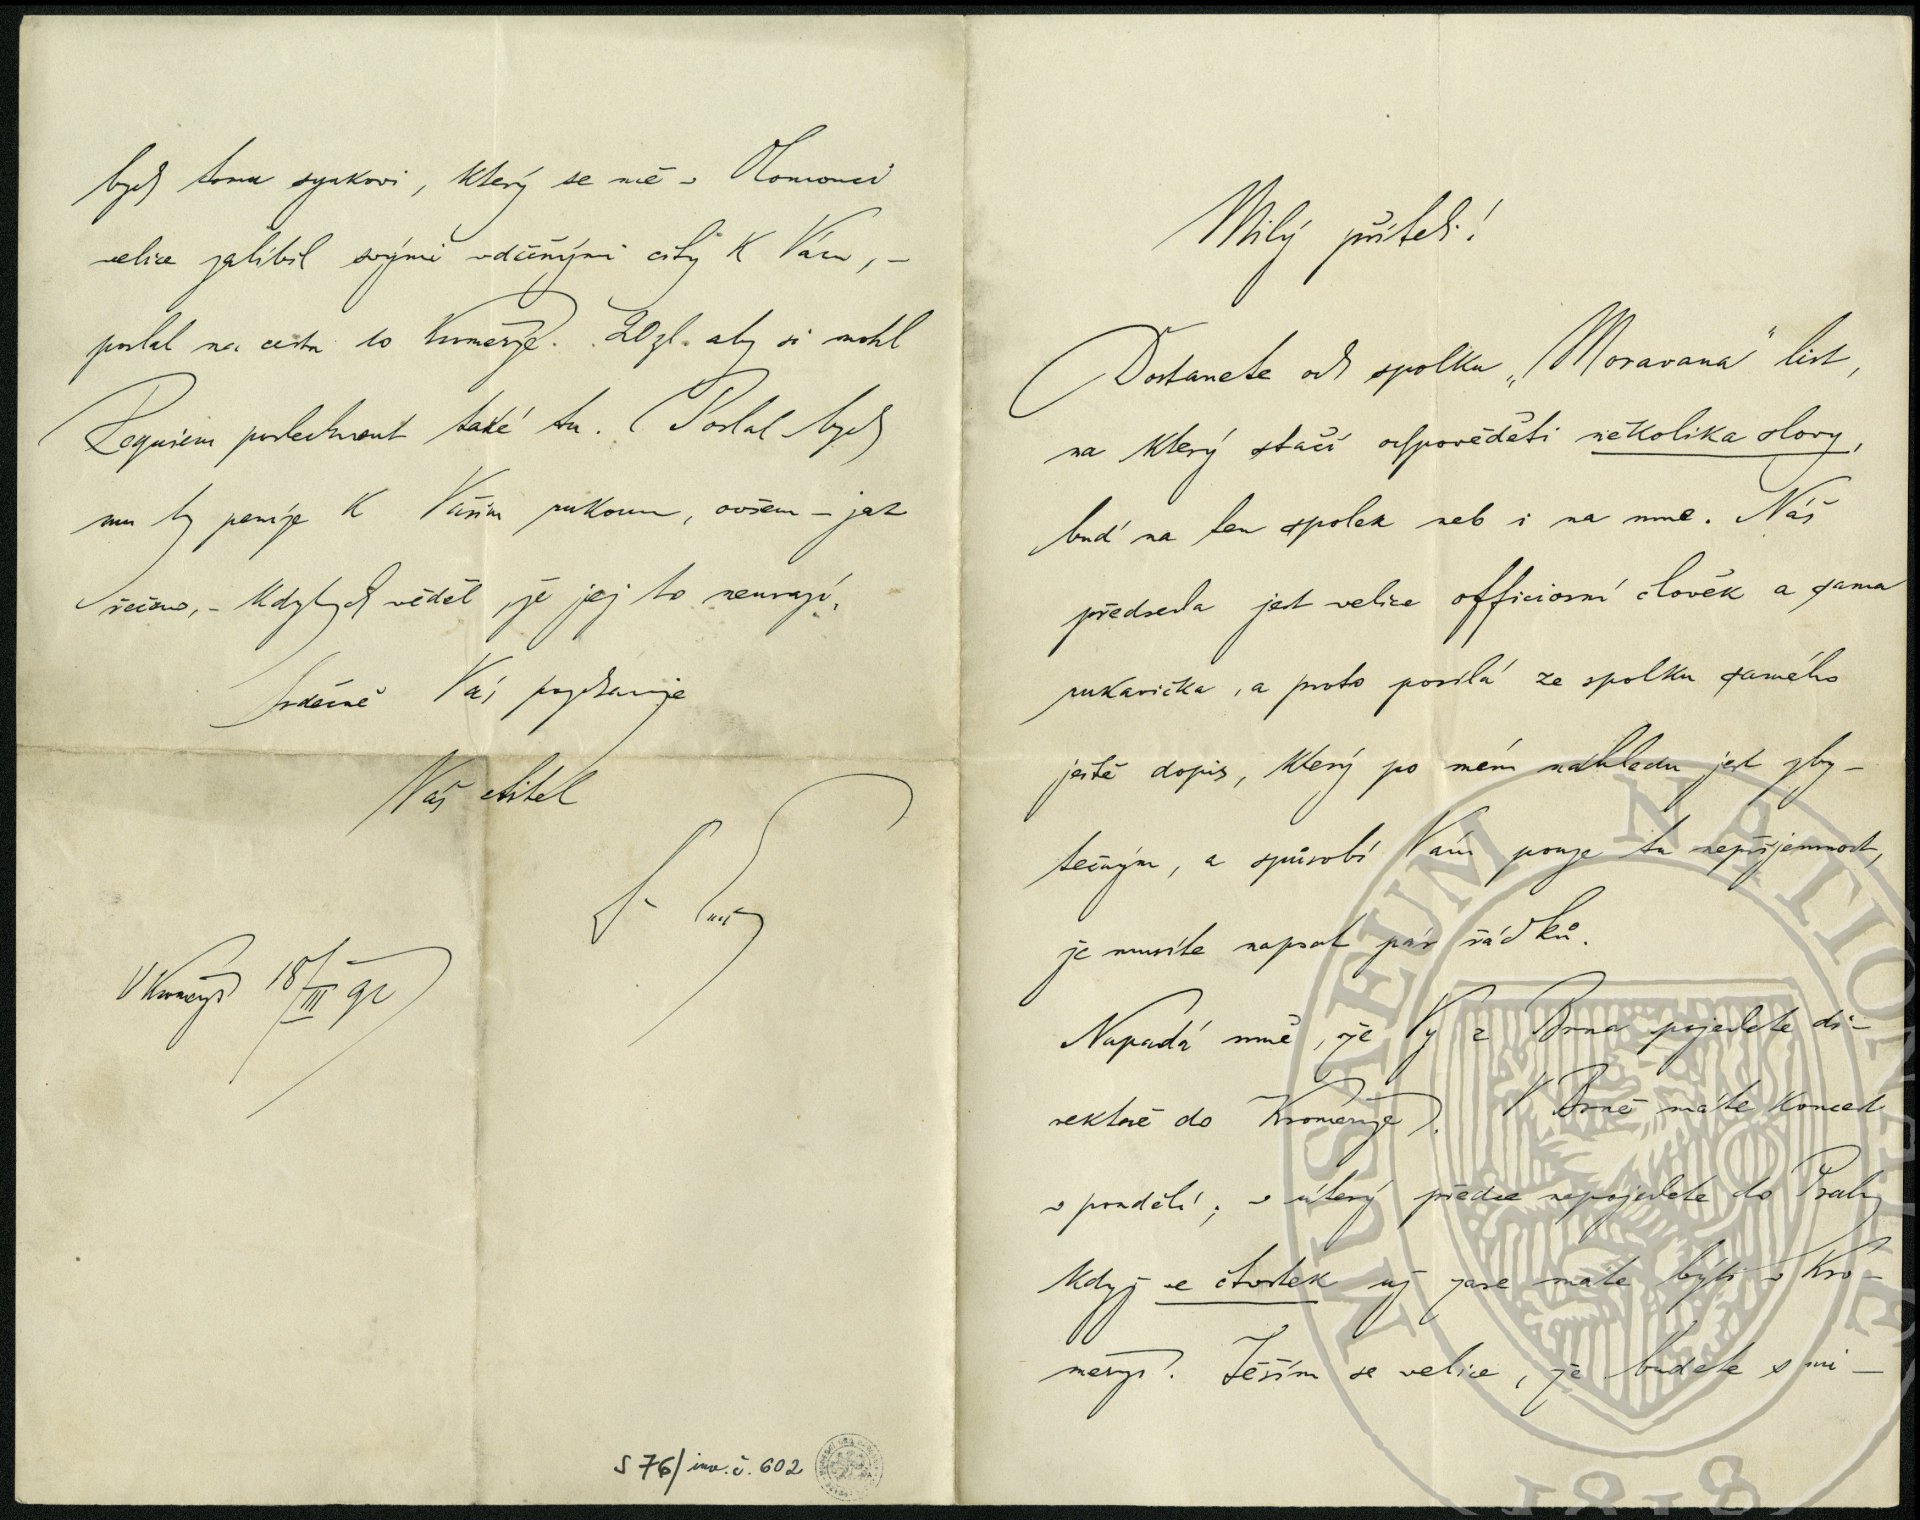 Milý příteli!
Dostanete od spolku „Moravana" list,
na který stačí odpověděti několika slovy,
buď na ten spolek neb i na mne. Náš
předseda jest velice officiosní člověk a sama
rukavička, a proto posílá ze spolku samého
ještě dopis, který po mém náhledu jest zby-
tečným, a spůsobí Vám pouze tu nepříjemnost,
že musíte napsat pár řádků.
Napadá mně, že Vy z Brna pojedete di-
rektně do Kroměříže. V Brně máte koncert
v pondělí; v úterý přece nepojedete do Prahy
když ve čtvrtek už zase máte býti v Kro-
měříži. Těším se velice, že budete s mi-
bych tomu synkovi, který se mě v Olomouci
velice zalíbil svými vděčnými city k Vám, –
poslal na cestu do Kroměříže 20 zl. aby si mohl
Requiem poslechnout také tu. Poslal bych
mu ty peníze k Vašim rukoum, ovšem – jak
řečeno, – kdybych věděl, že jej to neurazí.
Srdečně Vás pozdravuje
Váš ctitel
V Kroměříži 18/III 92
S 76/inv. č. 602
MUSAEUM NATIONALE
1818